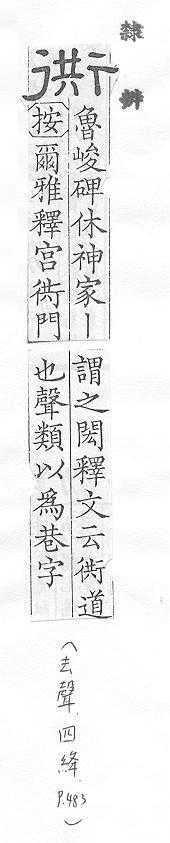 隸辨
衖
魯峻碑休神家丨
按爾雅釋宮衖門
謂之閎釋文云衖道
也聲類以爲巷字
(去聲 四絳 P.483)